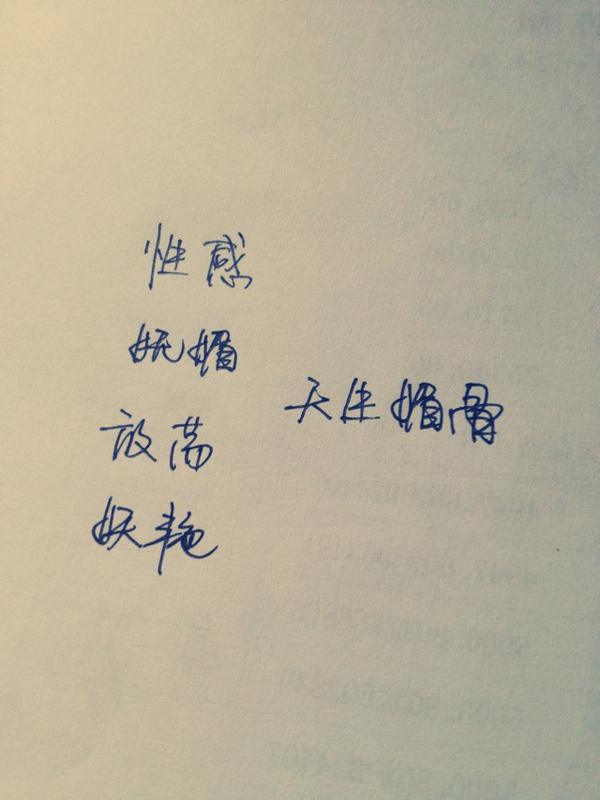 性感
妩媚
天生媚骨
放荡
妖艳